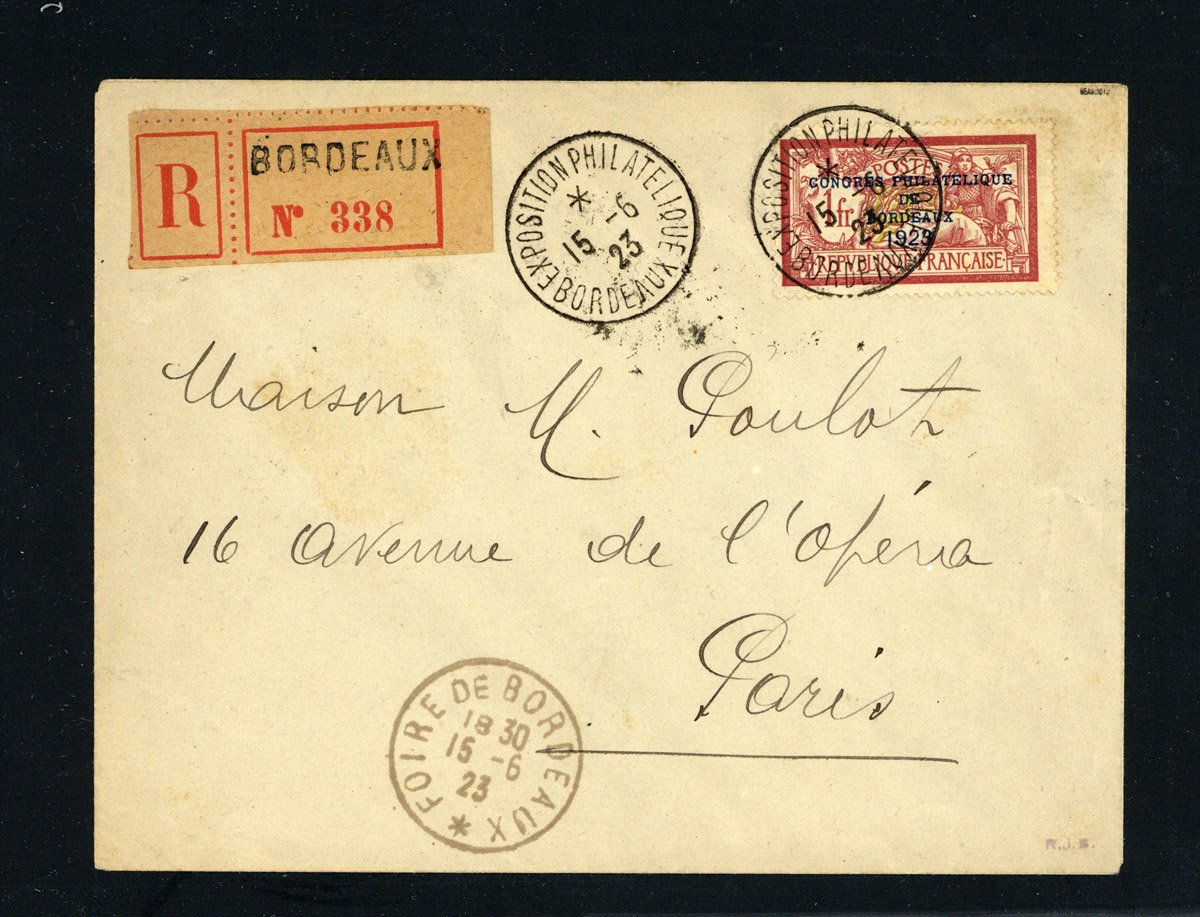 R
BORDEAUX
Nº 338
EXPOSITION PHILATELIQUE
* 15 -6 23
BORDEAUX
EXPOSITION PHILATELIQUE
* 15 -6 23
BORDEAUX
POSTES
1 fr
CONGRES PHILATELIQUE
DE
BORDEAUX
1923
REPUBLIQUE FRANÇAISE
Maison M. Poulot
16 avenue de l'opéra
Paris
FOIRE DE BORDEAUX *
18 30
15 -6
23
R.J.B.